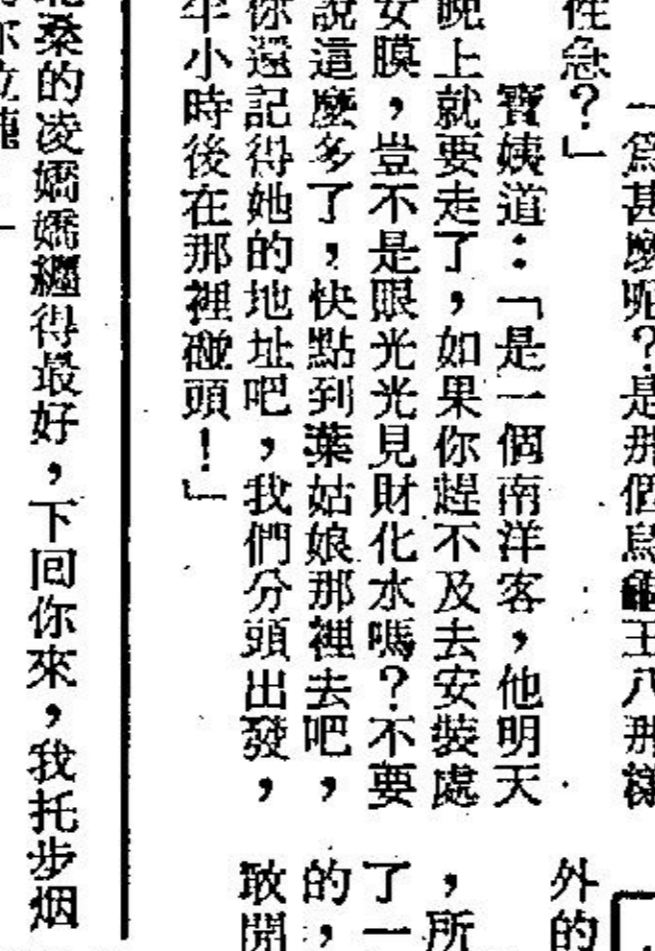 性急？」
爲甚麼呢？是那個烏龜王八那樣
寶姨道：「是一個南洋客，他明天
晚上就要走了，如果你趕不及去安裝處
女膜，豈不是眼光光見財化水嗎？不要
說這麼多了，快點到葉姑娘那裡去吧，
你還記得她的地址吧，我們分頭出發，
半小時後在那裡碰頭！」
外的
，所
了一
的，
敢開
桑的凌嬌嬌繼得最好，下回你來，我托步烟